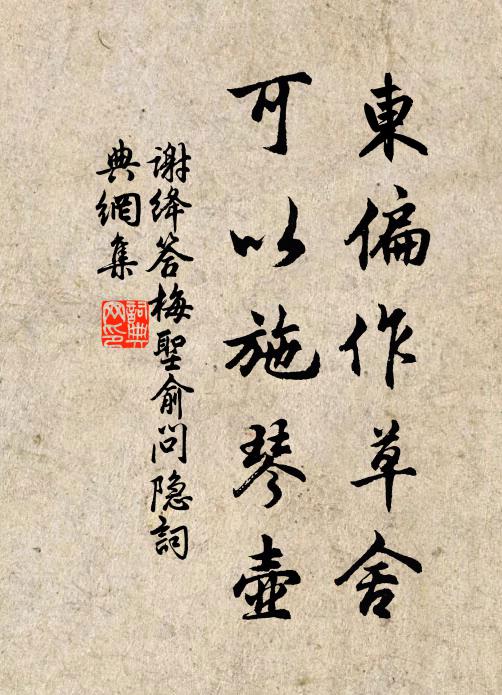 東偏作草舍
可以施琴壺
谢绛答梅聖俞问隐詞
典網集
詞典网印